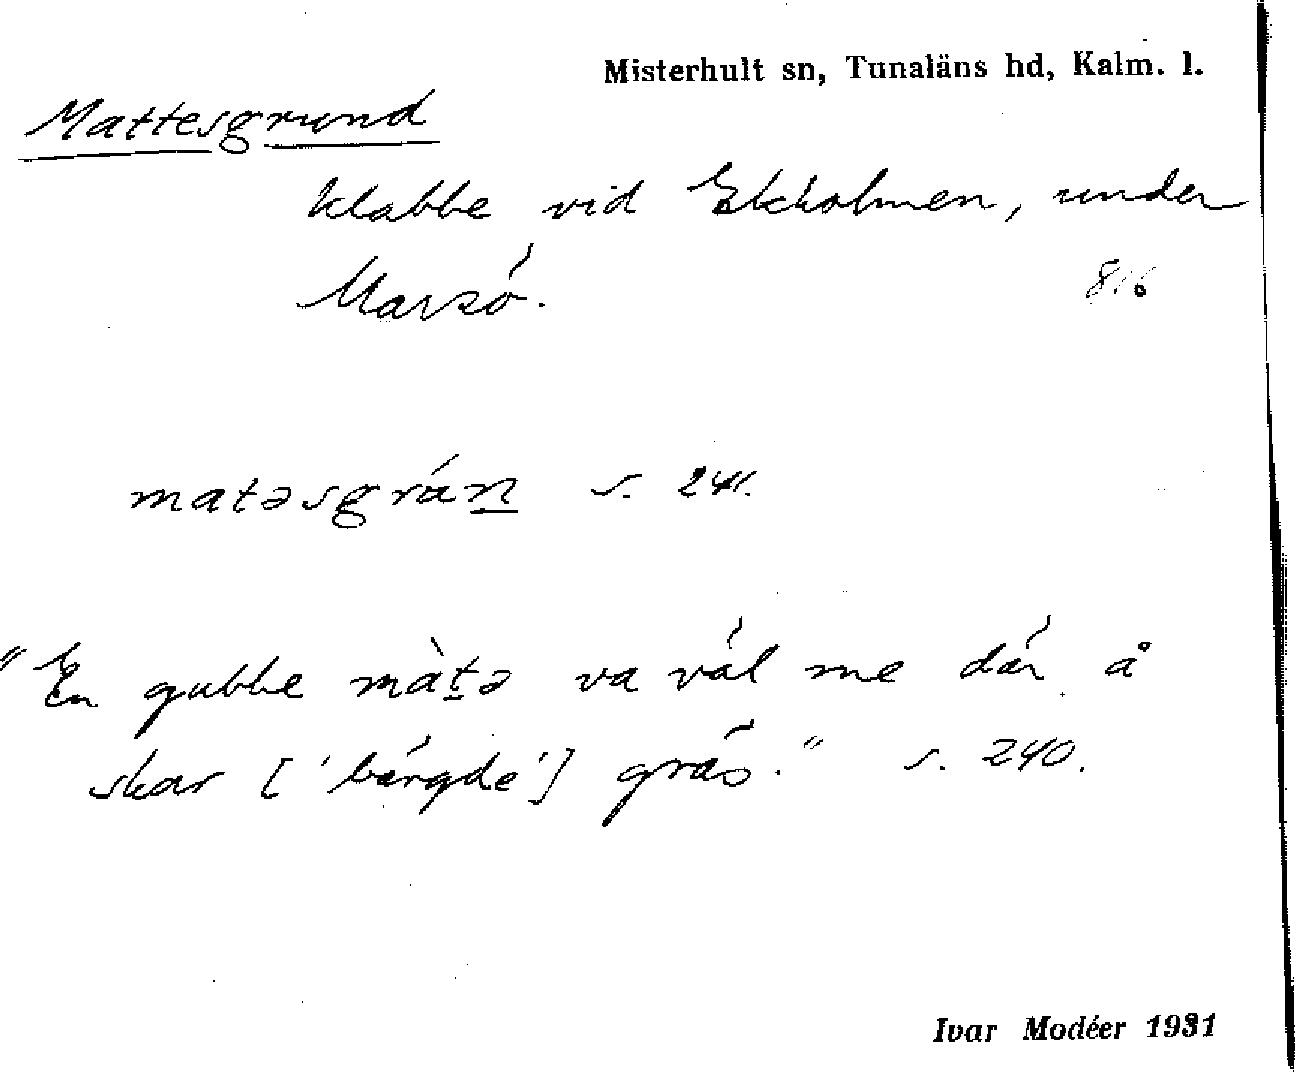 Misterhult sn, Tunaläns hd, Kalm. l.
Mattesgrund
klabbe vid Ekholmen, under
Marsö.
816
matəsgrán s. 241.
"En gubbe màtə va väl me där å
skar ['bärgde'] gräs." s. 240.
Ivar Modéer 1931